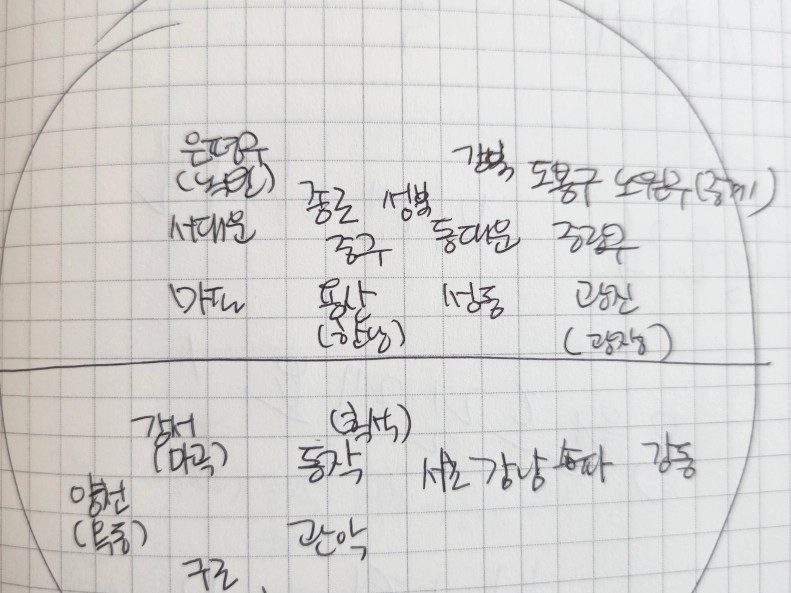 은평구
(녹번)
강북 도봉구 노원구(중계)
종로 성북
서대문 중구 동대문 중랑구
마포 용산 성동 광진
(한남) (광장동)
강서 (흑석)
(마곡) 동작 서초 강남 송파 강동
양천
(목동) 관악
구로